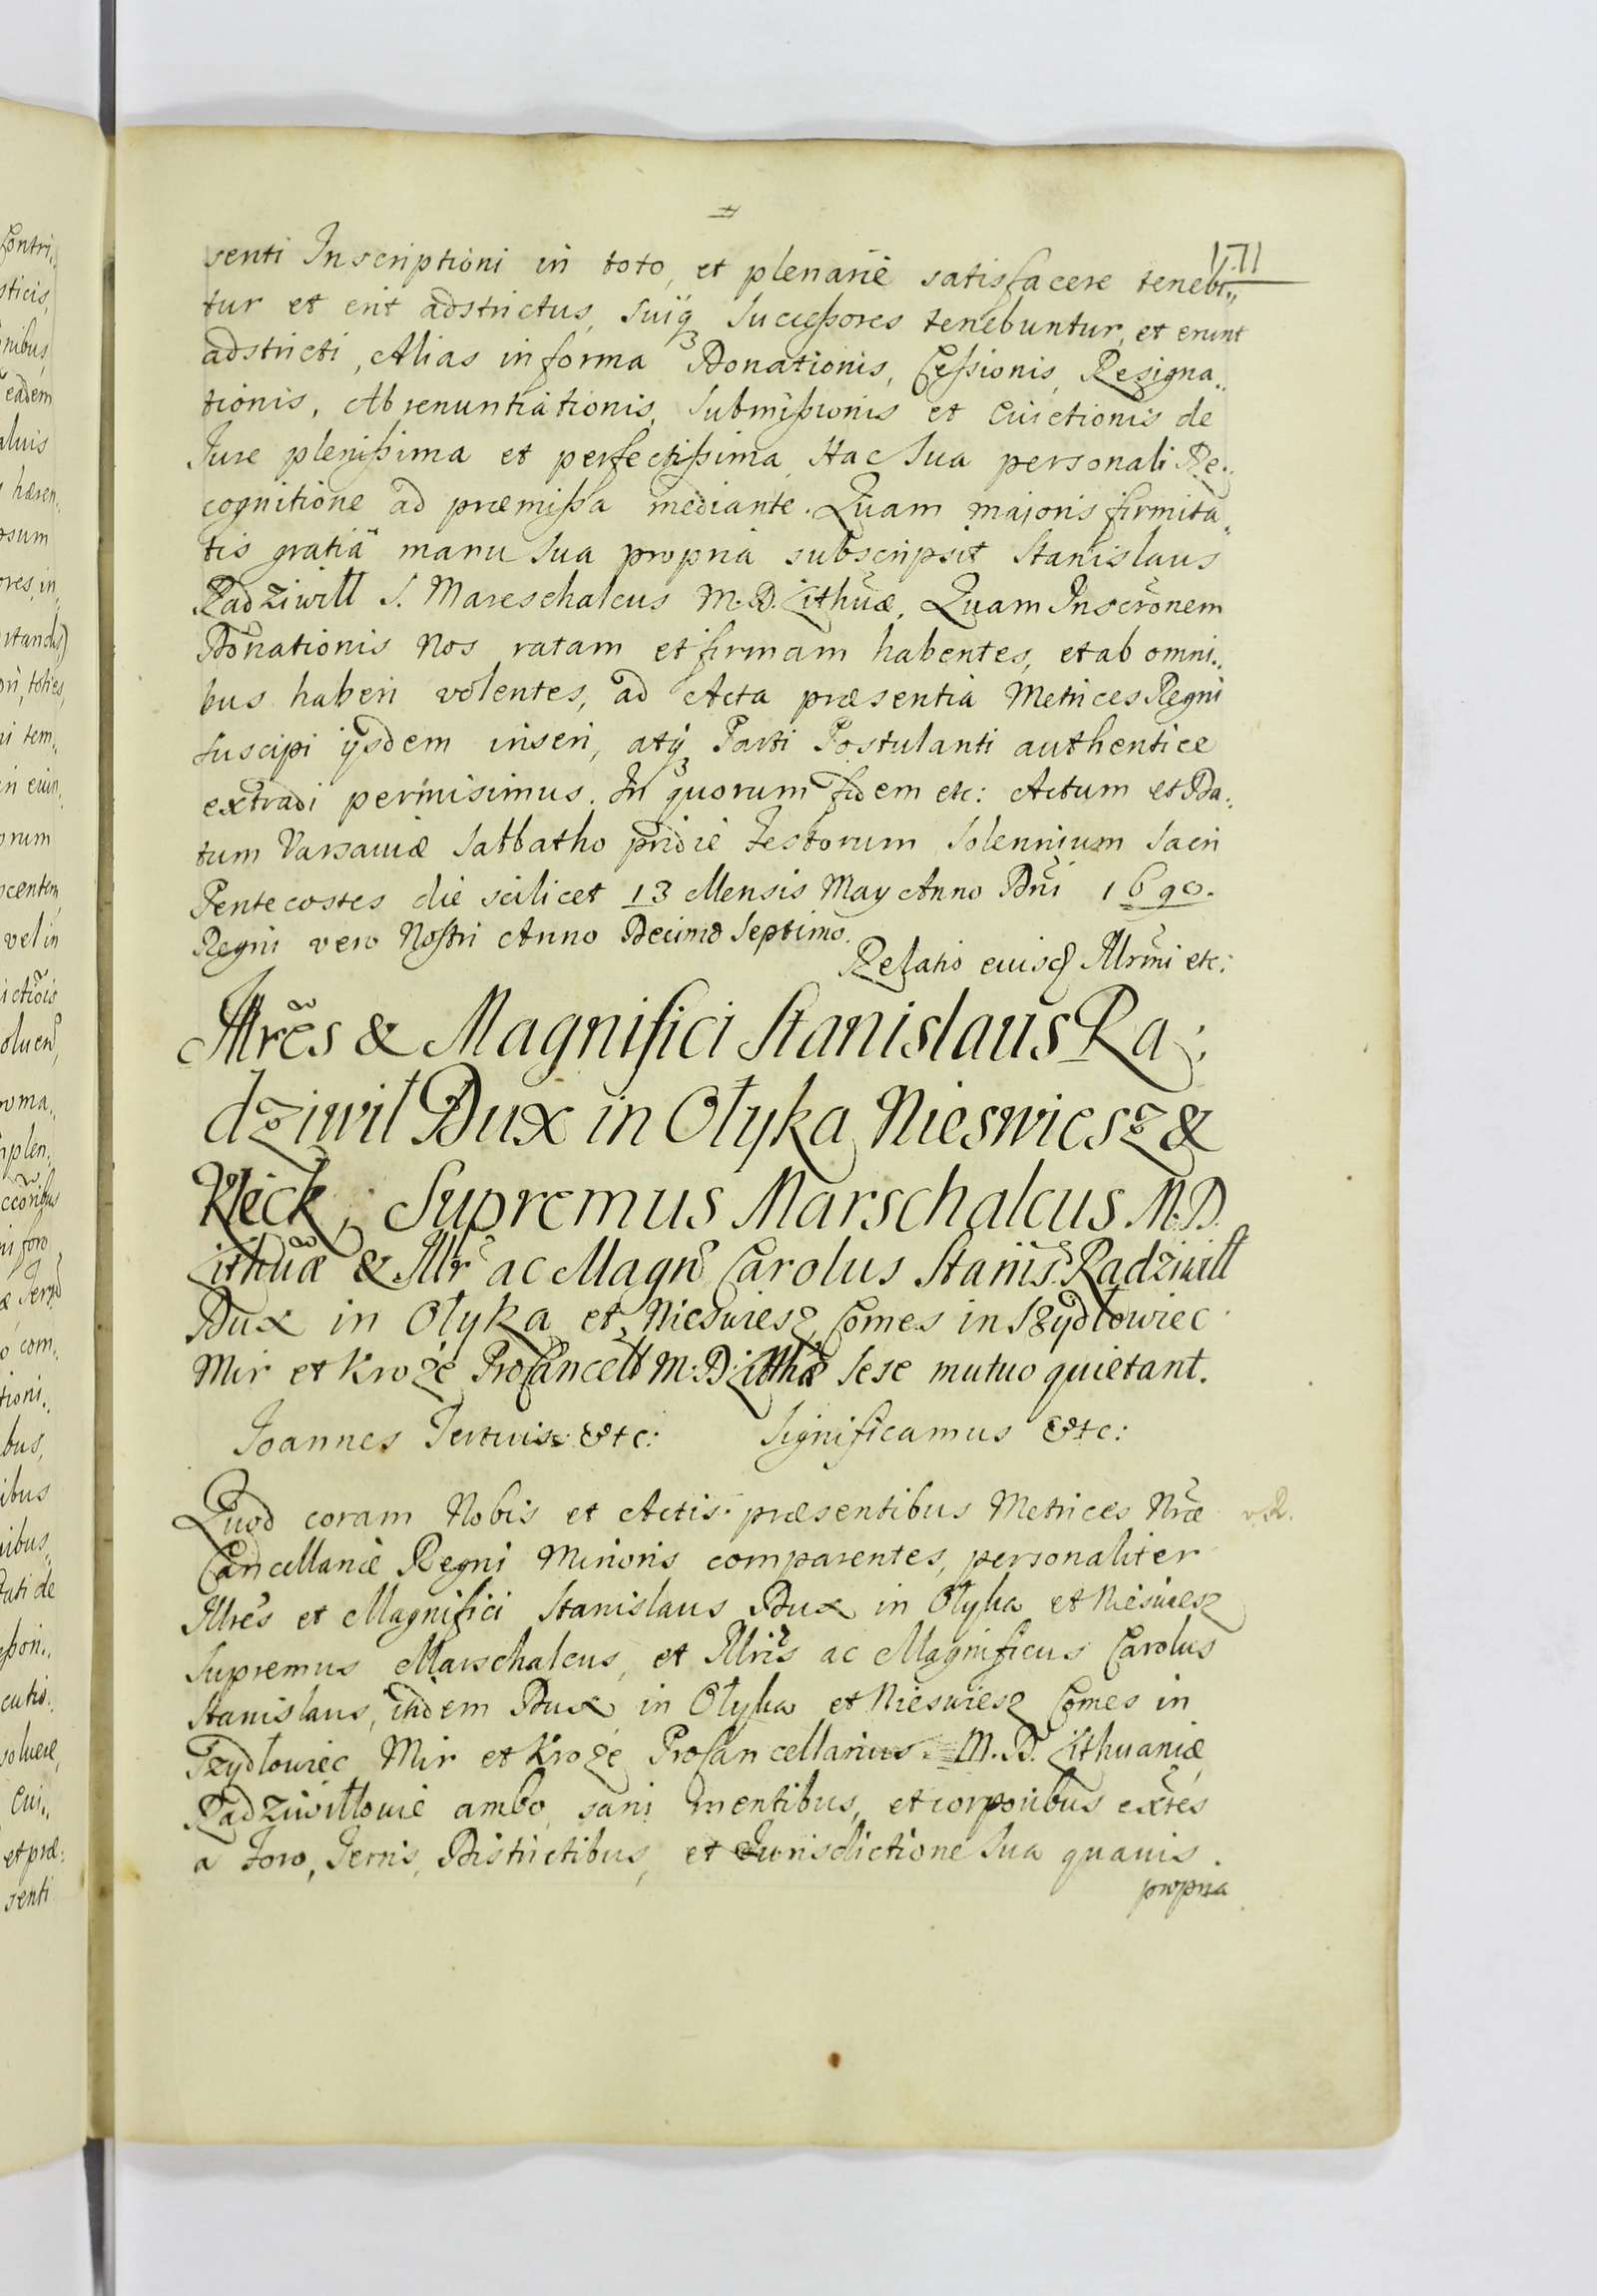 171
senti Inscriptioni in toto, et plenarie satisfacere tenebi„
tur et erit adstrictus, suiq3 Successores tenebuntur, et erunt
adstricti, Alias in forma Donationis, Cessionis, Resigna„
tionis, Abrenuntiationis, Submissionis et Evictionis de
Jure plenissima et perfectissima, Hac Sua personali Re„
cognitione ad præmissa mediante. Quam majoris firmita„
tis gratiâ manu Sua propria subscripsit Stanislaus
Radziwill S. Mareschalcus M. D. Lithũæ, Quam Inscrõnem
Donationis Nos ratam et firmam habentes, et ab omni„
bus haberi volentes, ad Acta præsentia Metrices Regni
suscipi ijsdem inseri, atq3 Parti Postulanti authentice
extradi permisimus. In quorum fidem etc: Actum et Da„
tum Varsaviæ Sabbatho pridie Festorum Solennium Sacri
Pentecostes die scilicet 13 Mensis May Anno Dñi 1690.
Regni vero Nostri Anno Decimo Septimo.
Relatio eiusd Illrmi etc:
Illrẽs & Magnifici Stanislaus Ra:
dziwił Dux in Ołyka Nieswiesz &
Kleck, Supremus Marschalcus M. D.
Lithũæ & Illr ac Magñ Carolus Stanis: Radziwill
Dux in Ołyka et Nieswiesz Comes in Szydłowiec
Mir et Kroże ProCancell M: D: Lithæ Sese mutuo quietant.
Joannes Tertius &tc: Significamus &tc:
Quod coram Nobis et Actis præsentibus Metrices Nræ
Cancellariæ Regni Minoris comparentes, personaliter
Illrẽs et Magnifici Stanislaus Dux in Ołyka et Nieswiesz
Supremus Marschalcus, et Illris ac Magnificus Carolus
Stanislaus, itidem Dux in Ołyka et Nieswiesz Comes in
Szydłowiec Mir et Kroże ProCancellarius M. D. Lithuaniæ,
Radziwiłłowie ambo, sani mentibus, et corporibus extẽs
a Foro, Terris, Districtibus, et Jurisdictione Sua quavis
propria